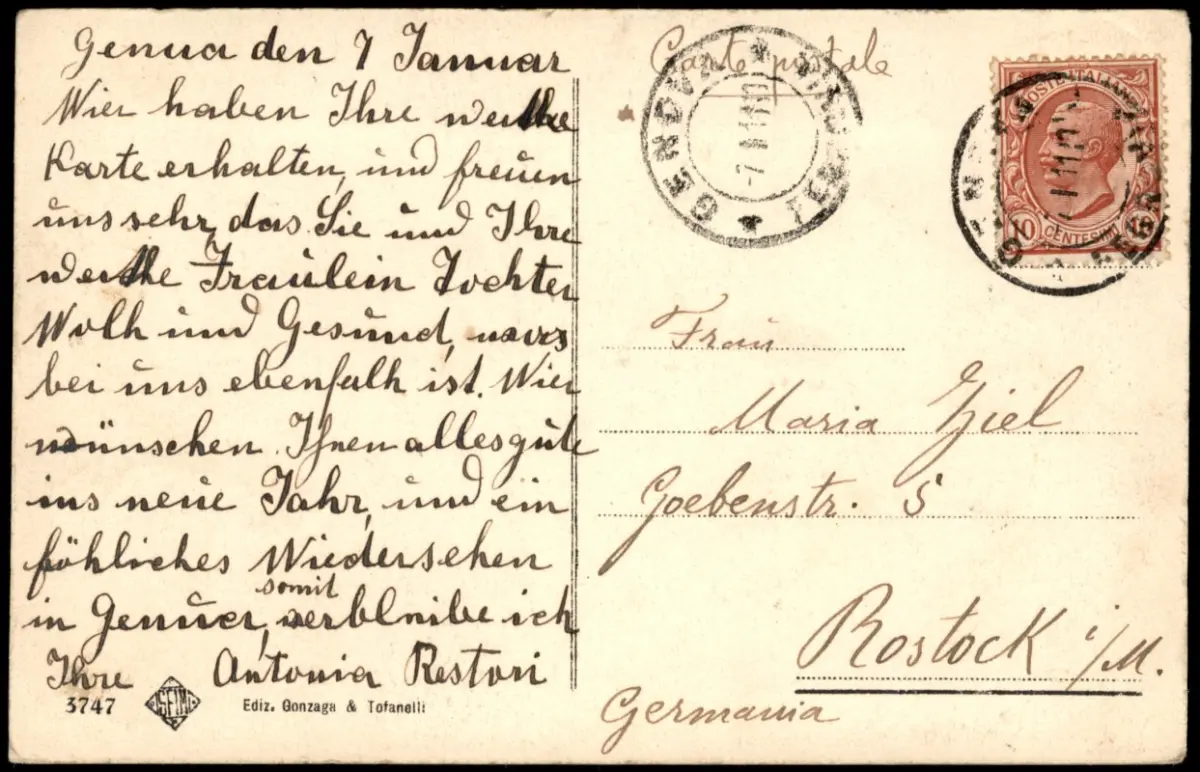 Genua den 7 Januar
Wier haben Ihre werthe
Karte erhalten, und freuen
uns sehr, das Sie und Ihre
werthe Fraulein Tochter
Wolh und Gesund,
bei uns ebenfalh ist. Wier
wünschen Ihnen alles gute
ins neue Jahr, und ein
föhliches Wiedersehen
somit
in Genua, verblnibe ich
Ihre Antonia Restori
3747
Ediz. Gonzaga & Tofanelli
Carte postale
GENOVA
7 1 11
POSTE ITALIANE
10 CENTESIMI 10
Frau
Maria Ziel
Goebenstr. 5
Rostock i/M.
Germania